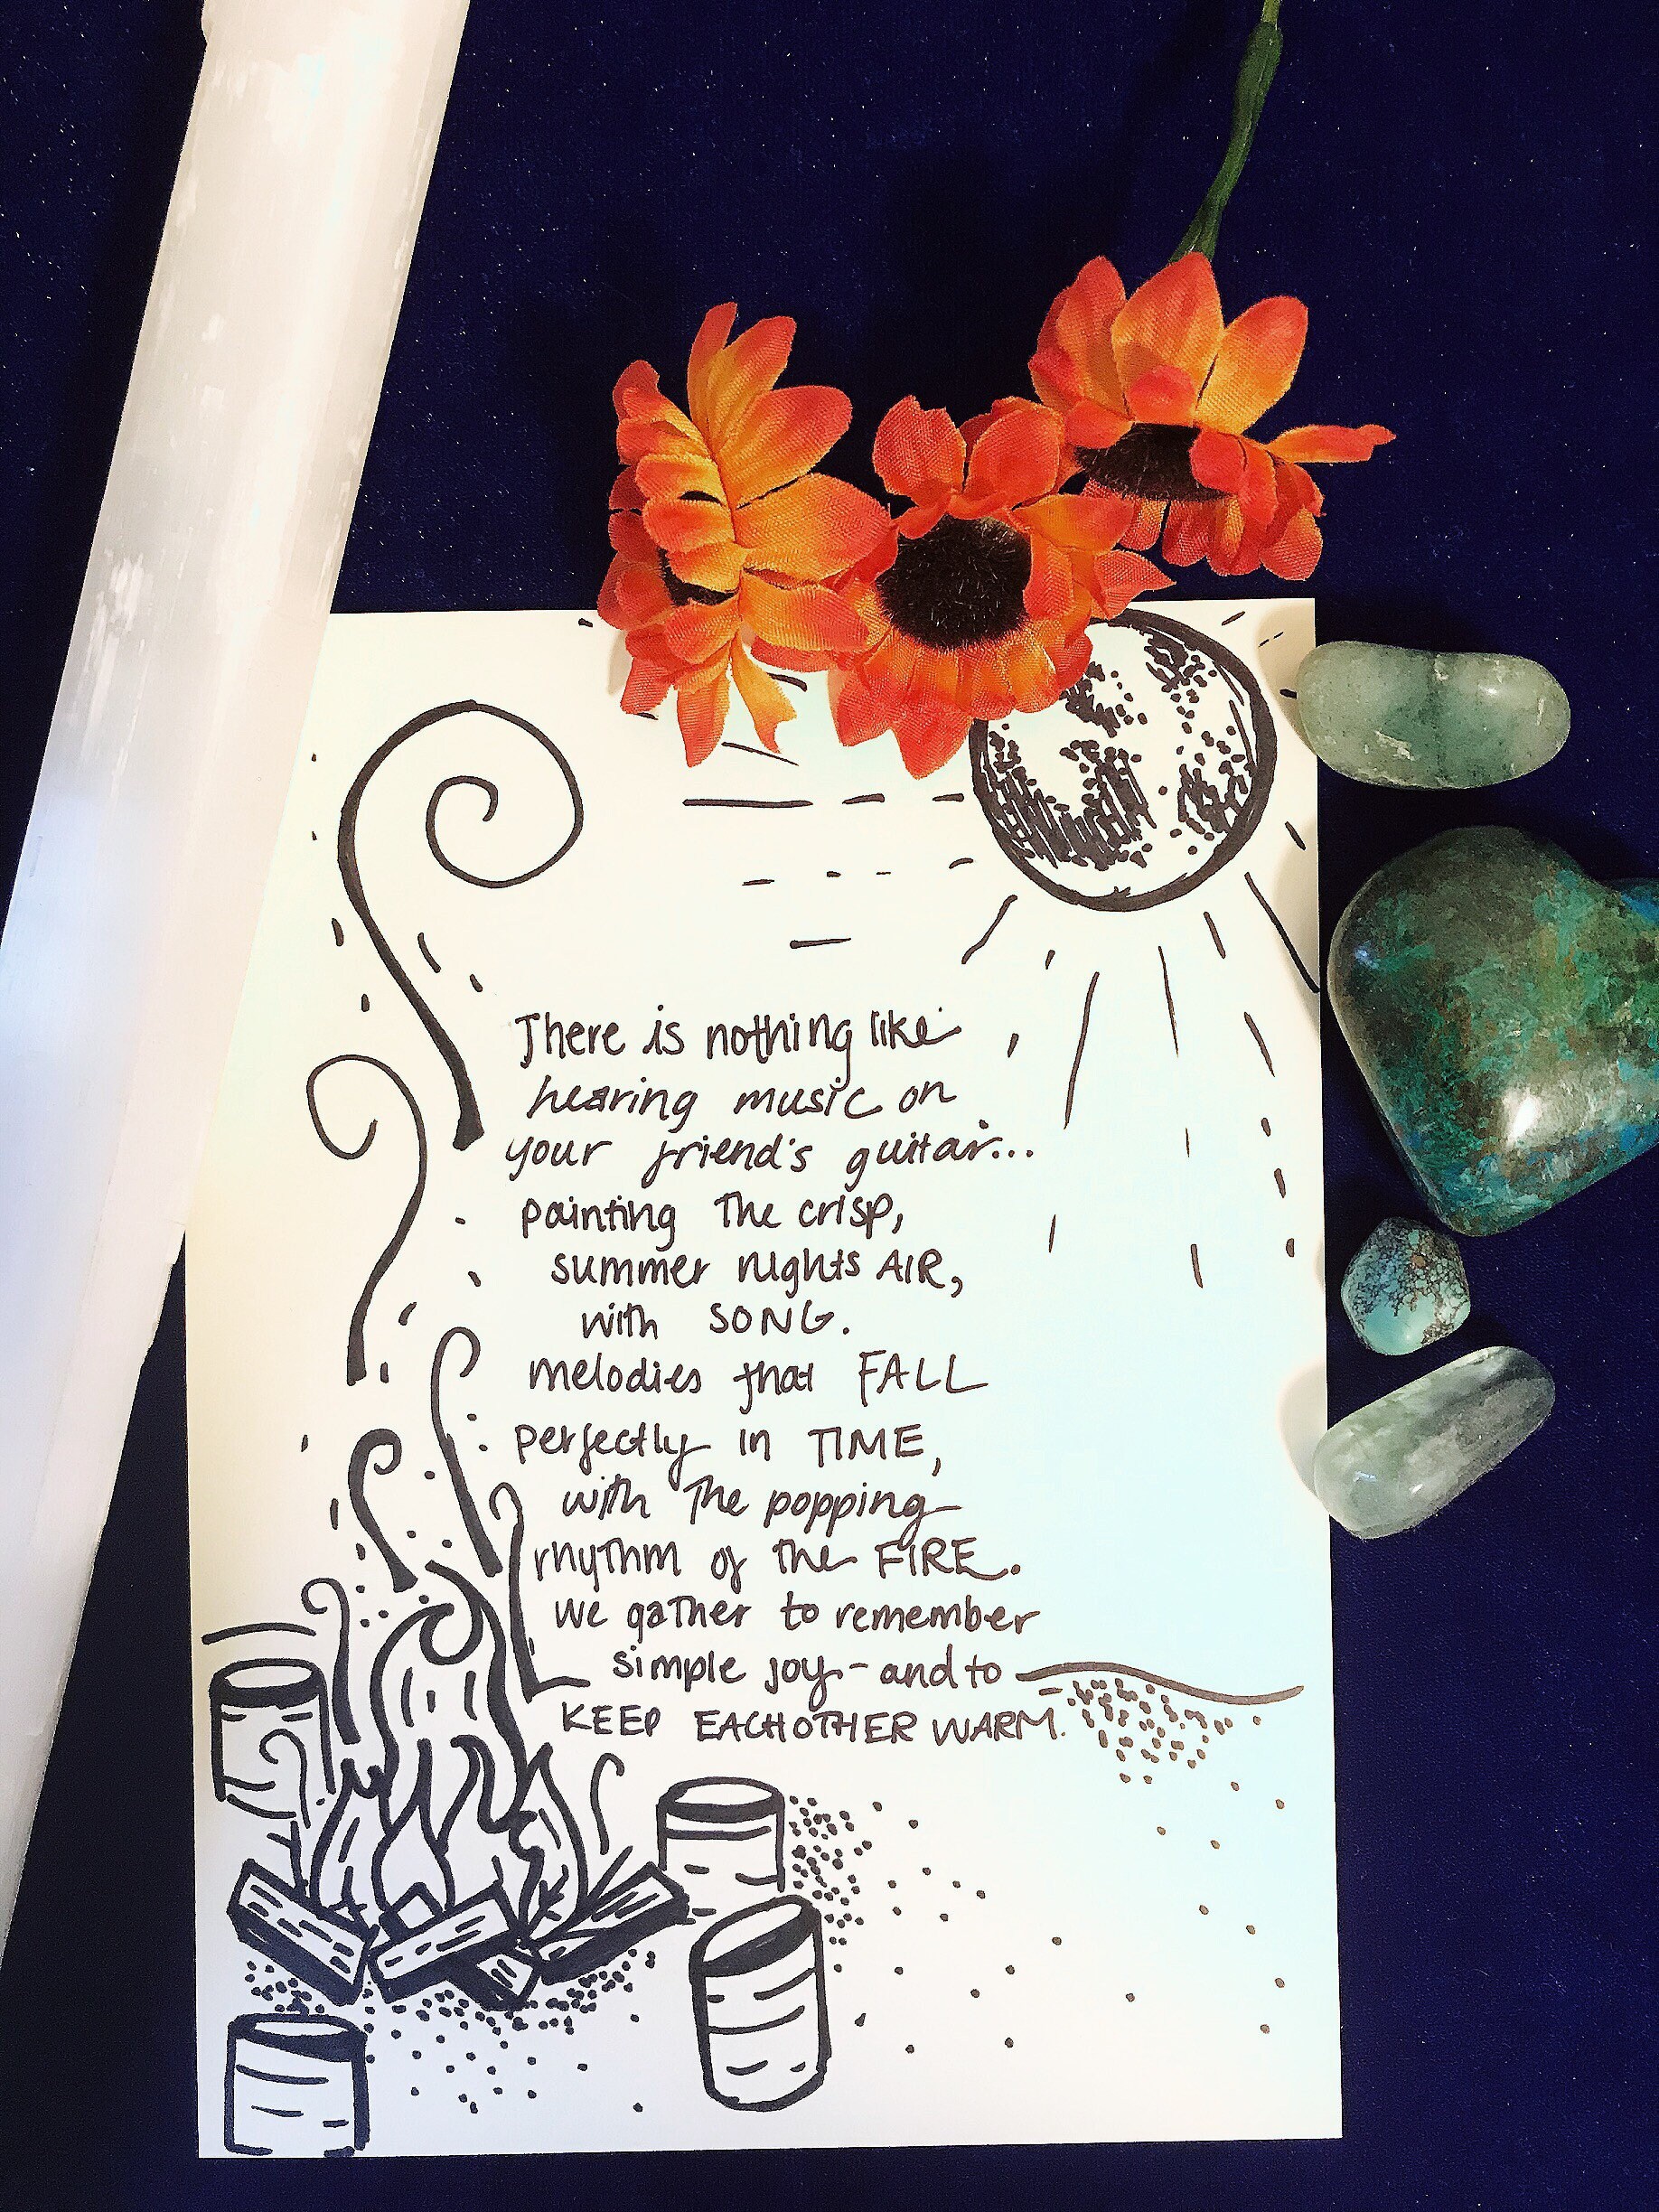 There is nothing like
hearing music on
your friend's guitar...
painting the crisp,
summer nights AIR,
with SONG.
melodies that FALL
perfectly in TIME,
with the popping
rhythm of the FIRE.
We gather to remember
simple joy - and to
KEEP EACHOTHER WARM.